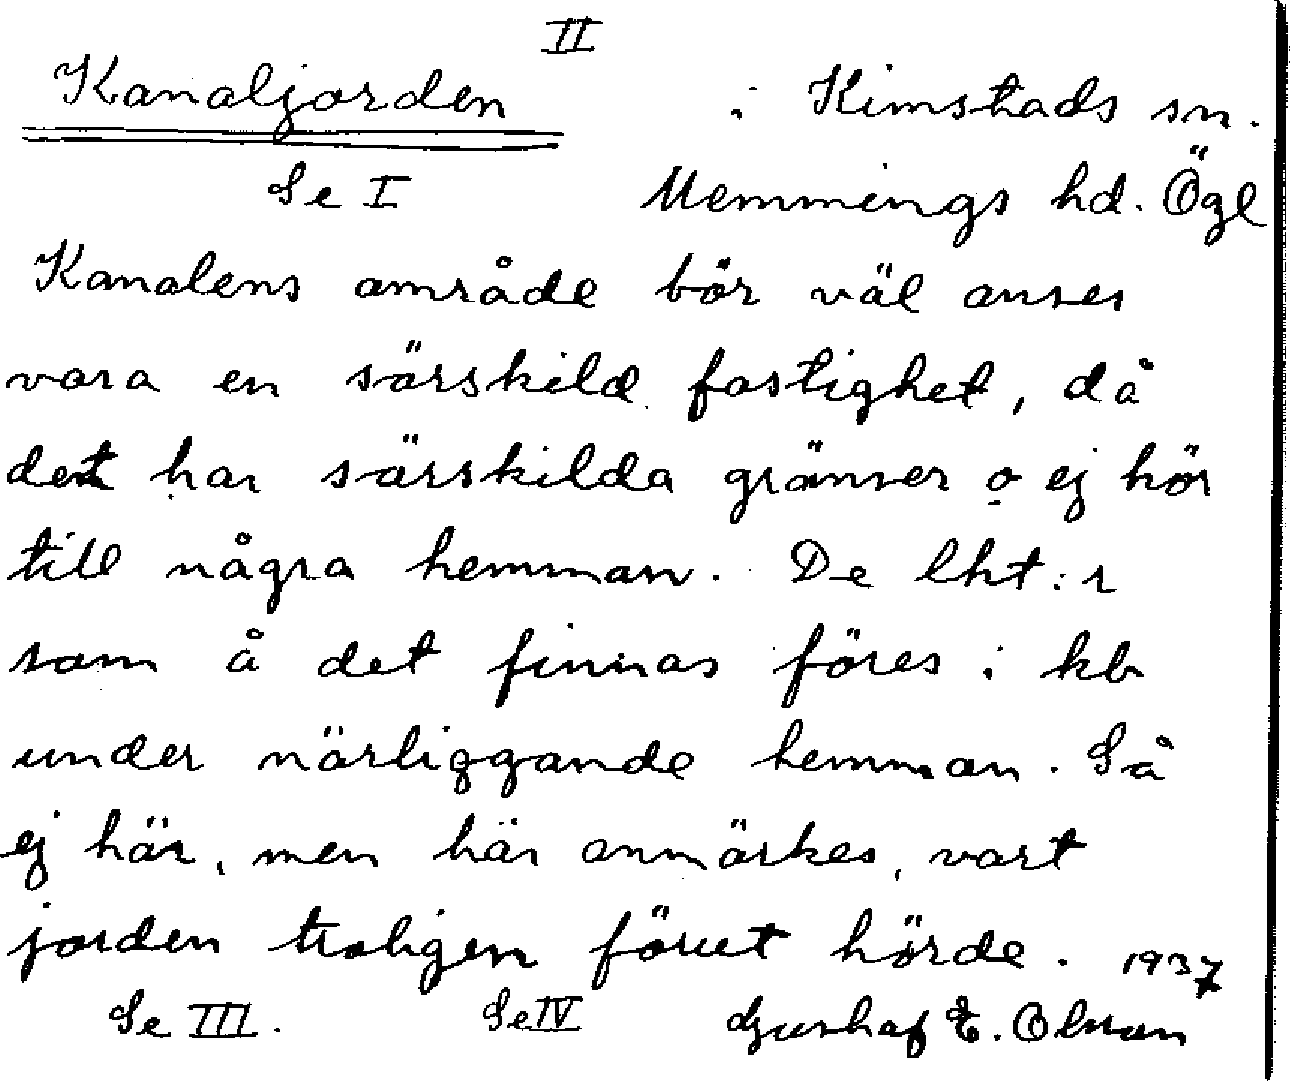 II
Kanaljorden i Kimstads sn.
Se I Memmings hd. Ögl
Kanalens område bör väl anses
vara en särskild fastighet, då
det har särskilda gränser o ej hör
till några hemman. De lht:r
som å det finnas föres i kb
under närliggande hemman. Så
ej här, men här anmärkes, vart
jorden troligen förut hörde. 1937
Se III. Se IV Gustaf E. Olsson